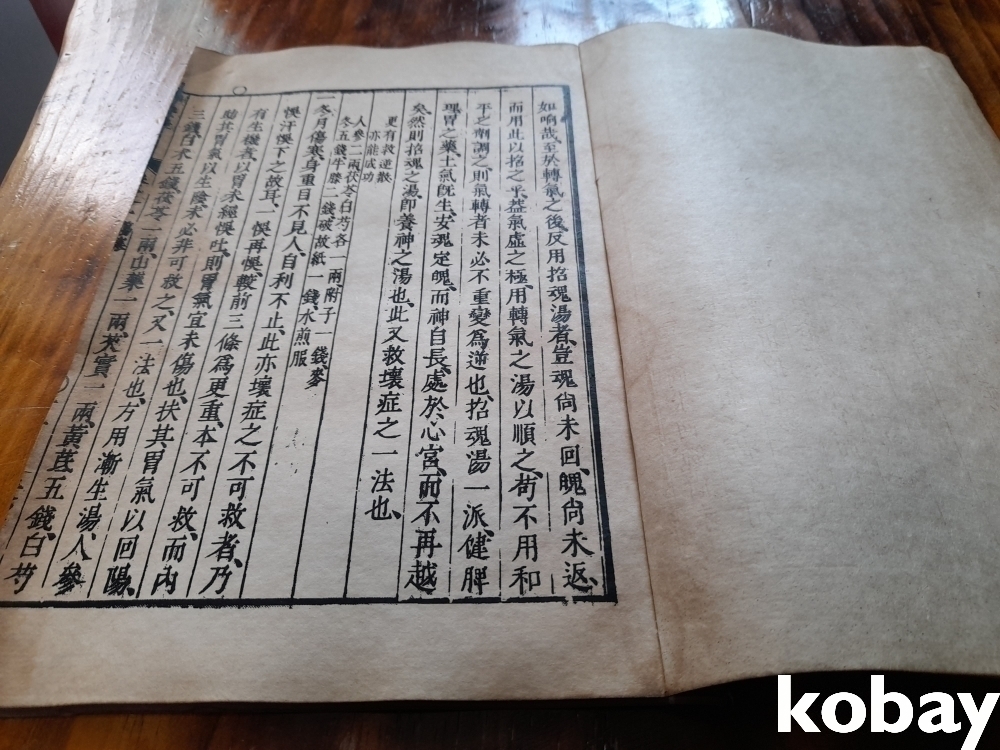 如响哉、至於轉氣之後、反用招魂湯者、豈魂尙未回、魄尙未返、
而用此以招之乎、蓋氣虛之極、用轉氣之湯以順之、苟不用和
平之劑調之、則氣轉者未必不重變爲逆也、招魂湯一派、健脾
理胃之藥、土氣旣生、安魂定魄、而神自長、處於心宮、而不再越
矣、然則招魂之湯、卽養神之湯也、此又救壞症之一法也、
更有救逆散
亦能成功
人參二兩茯苓白芍各一兩附子一錢麥
冬五錢牛膝二錢破故紙一錢、水煎服
一冬月傷寒、身重目不見人、自利不止、此亦壞症之不可救者、乃
悞汗悞下之故耳、一悞再悞、較前三條爲更重、本不可救、而內
有生機者、以胃未經悞吐、則胃氣宜未傷也、扶其胃氣以回陽、
助其胃氣以生陰、未必非可救之、又一法也、方用漸生湯、人參
三錢、白朮五錢、茯苓一兩、山藥一兩、芡實一兩、黃芪五錢、白芍
kobay